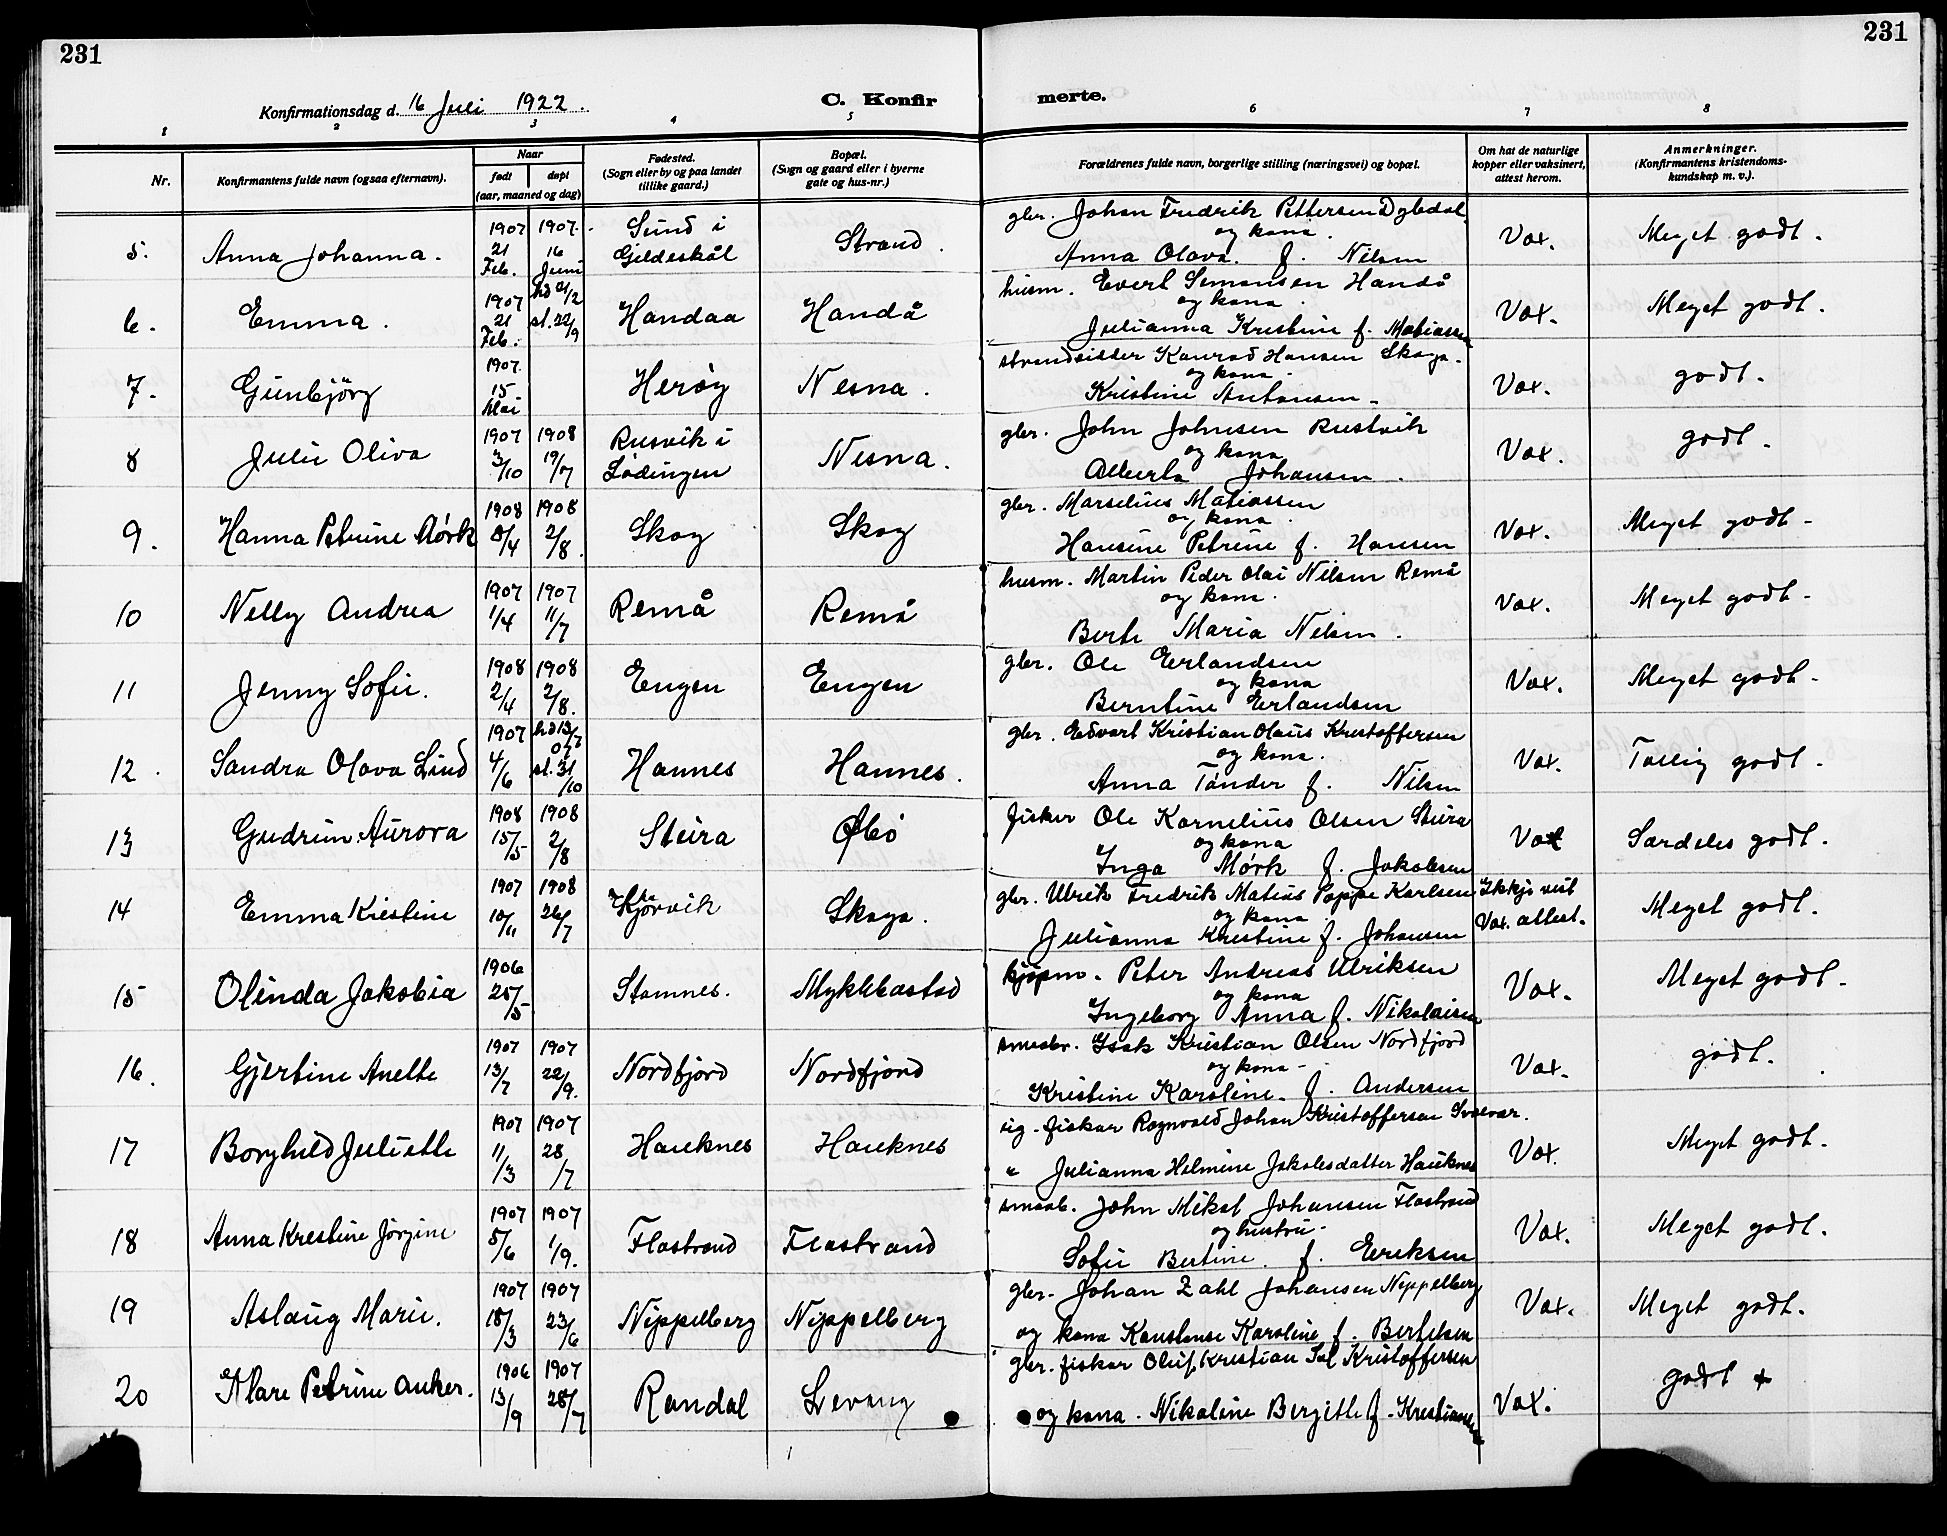 231
231
Konfirmationsdag d. 16 Juli 1922.
C. Konfir
merte.
1 2 3 4 5 6 7 8
Nr.
Konfirmantens fulde navn (ogsaa efternavn).
Naar
født
døpt
(aar, maaned og dag)
Fødested.
(Sogn eller by og paa landet
tillike gaard.)
Bopæl.
(Sogn og gaard eller i byerne
gate og hus-nr.)
Forældrenes fulde navn, borgerlige stilling (næringsvei) og bopæl.
Om hat de naturlige
kopper eller vaksinert,
attest herom.
Anmerkninger.
(Konfirmantens kristendoms-
kundskap m. v.).
5. Anna Johanna. 1907 21 Feb. 1907. 16 Juni Sund i Gildeskål Strand.
gbr. Johan Fredrik Pettersen
og kona.
Anna Olava. f. Nilsen
Vax. Meget godt.
6. Emma. 1907 21 Feb. hd 21/2 st. 22/9 Handaa Handå
husm. Evert Simonsen Handå
og kona.
Julianna Kristine f. Matiassen
Vax. Meget godt.
7. Gunbjörg 1907. 15 Mai Herøy Nesna.
strandsidder Konrad Hansen Skaga.
og kona.
Kristine Antonsen.
Vax. godt.
8 Julie Oliva 1907 3/10 1908 19/7 Rusvik i Lødingen Nesna.
gbr. John Johnsen Rustvik
og kona
Alberta Johansen.
Vax. godt.
9. Hanna Petrine Mørk 1908 8/4 1908 2/8. Skog Skog
gbr. Marselius Matiassen
og kona.
Hansine Petrine f. Hansen
Vax. Meget godt.
10 Nelly Andrea 1907 1/4 1907 11/7 Remå Remå
husm. Martin Peder Olai Nilsen Remå
og kona.
Berte Maria Nilsen.
Vax. Meget godt.
11 Jenny Sofie. 1908 2/4 1908 2/8. Engen Engen
gbr. Ole Erlandsen
og kona
Berntine Erlandsen
Vax. Meget godt.
12. Sandra Olava Lind 1907 4/6 hd 13/7 og st. 31/10 Hannes Hannes.
gbr. Edvart Kristian Olaus Kristoffersen
og kona.
Anna Tønder f. Nilsen
Vax. Tællig godt.
13 Gudrun Aurora 1908 15/5 1908 2/8 Stura Øbø
fisker Ole Kornelius Olsen Stura
og kona
Inga Mørk f. Jakobsen
Vax Særdeles godt.
14 Emma Kristine 1907 10/11 1908 26/7 Skaga.
gbr. Ulrik Fredrik Matius Pappe Karlsen
og kona
Julianna Kristine f. Johansen
Ikkje vist
Vax. attest. Meget godt.
15 Olinda Jakobia 1906 25/5 Stamnes. Myklebostad
kjøpm. Peter Andreas Ulriksen
og kona
Ingeborg Anna f. Nikolaisen
Vax. Meget godt.
16. Gjertine Anette 1907 13/7 1907 22/9. Nordfjord Nordfjord
smaabr. Isak Kristian Olsen Nordfjord
og kona
Kristine Karoline. f. Andersen
Vax. godt.
17 Borghild Juliette 1907 11/3 1907 28/7 Hauknes Hauknes
ug. fisker Rognvald Johan Kristoffersen Svolvær.
" Julianna Helmine Jakobsdatter Hauknes
Vax. Meget godt.
18 Anna Kristine Jørgine 1907 5/6 1907 1/9. Flostrand Flostrand
smaab. John Mikal Johansen Flostrand
og hustru.
Sofie Bertine. f. Eriksen
Vax. Meget godt.
19 Aslaug Marie. 1907 18/3 1907 23/6 Nyppelberg Nyppelberg
gbr. Johan Zahl Johansen Nyppelberg
og kona Konstanse Karoline f. Bertelsen
Vax. Meget godt.
20 Klare Petrine Anker. 1906 13/9 1907 28/7 Randal Levang
gbr. fisker Oluf Kristian Sal Kristoffersen
og kona. Nikoline Bergitte f. Kristiansen
Vax. godt +